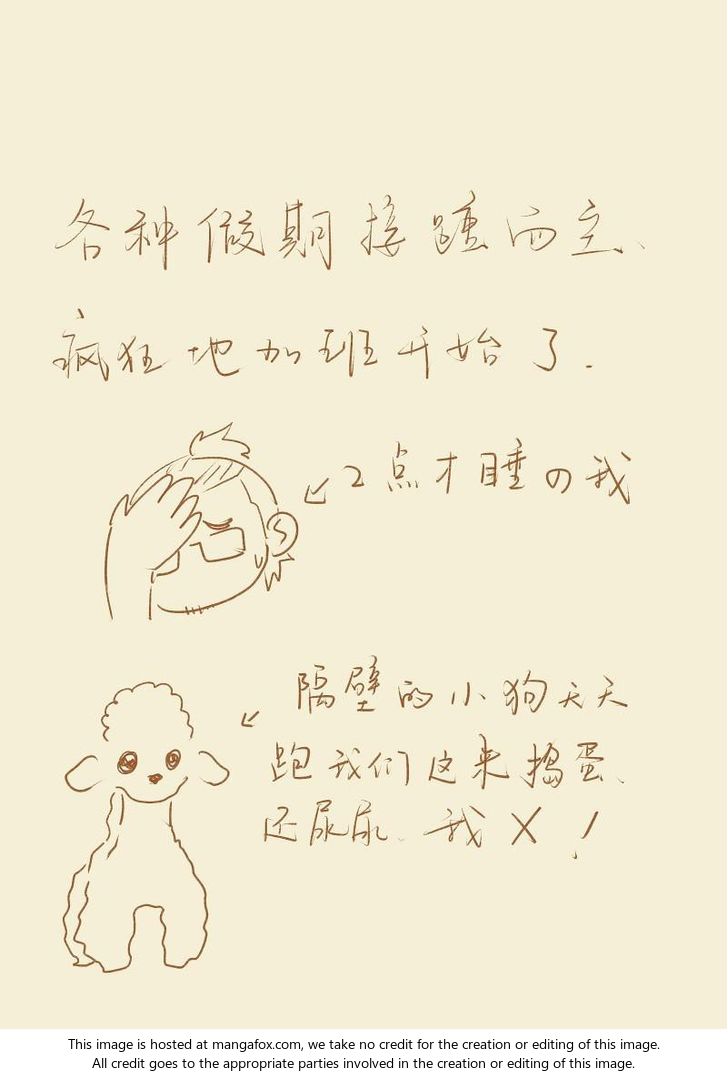 各种假期接踵而至、
疯狂地加班开始了.
2点才睡の我
隔壁的小狗天天
跑我们这来捣蛋、
还尿尿、我X!
This image is hosted at mangafox.com, we take no credit for the creation or editing of this image.
All credit goes to the appropriate parties involved in the creation or editing of this image.